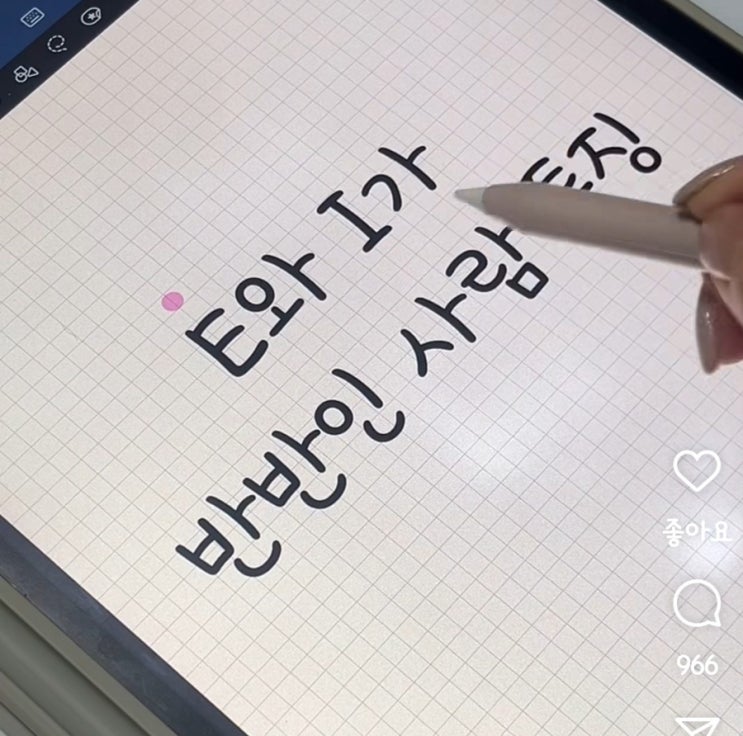 E와 I가
반반인 사람 특징
좋아요
966